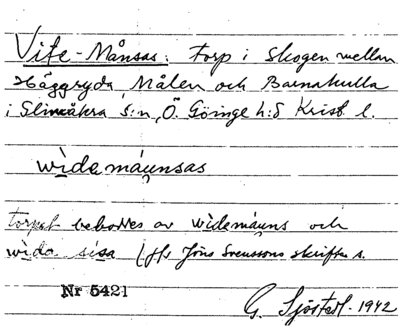 Vite-Månsas: torp i skogen mellan
Häggryda Målen och Barnakulla
i Slimåkra S:n, Ö. Göinge h:d Krist. l.
widamáunsas
torpet beboddes av widemáuns och
wida sisa (jfr Jöns Svenssons skrifter s.
Nr 5421
G. Sjöstedt. 1942